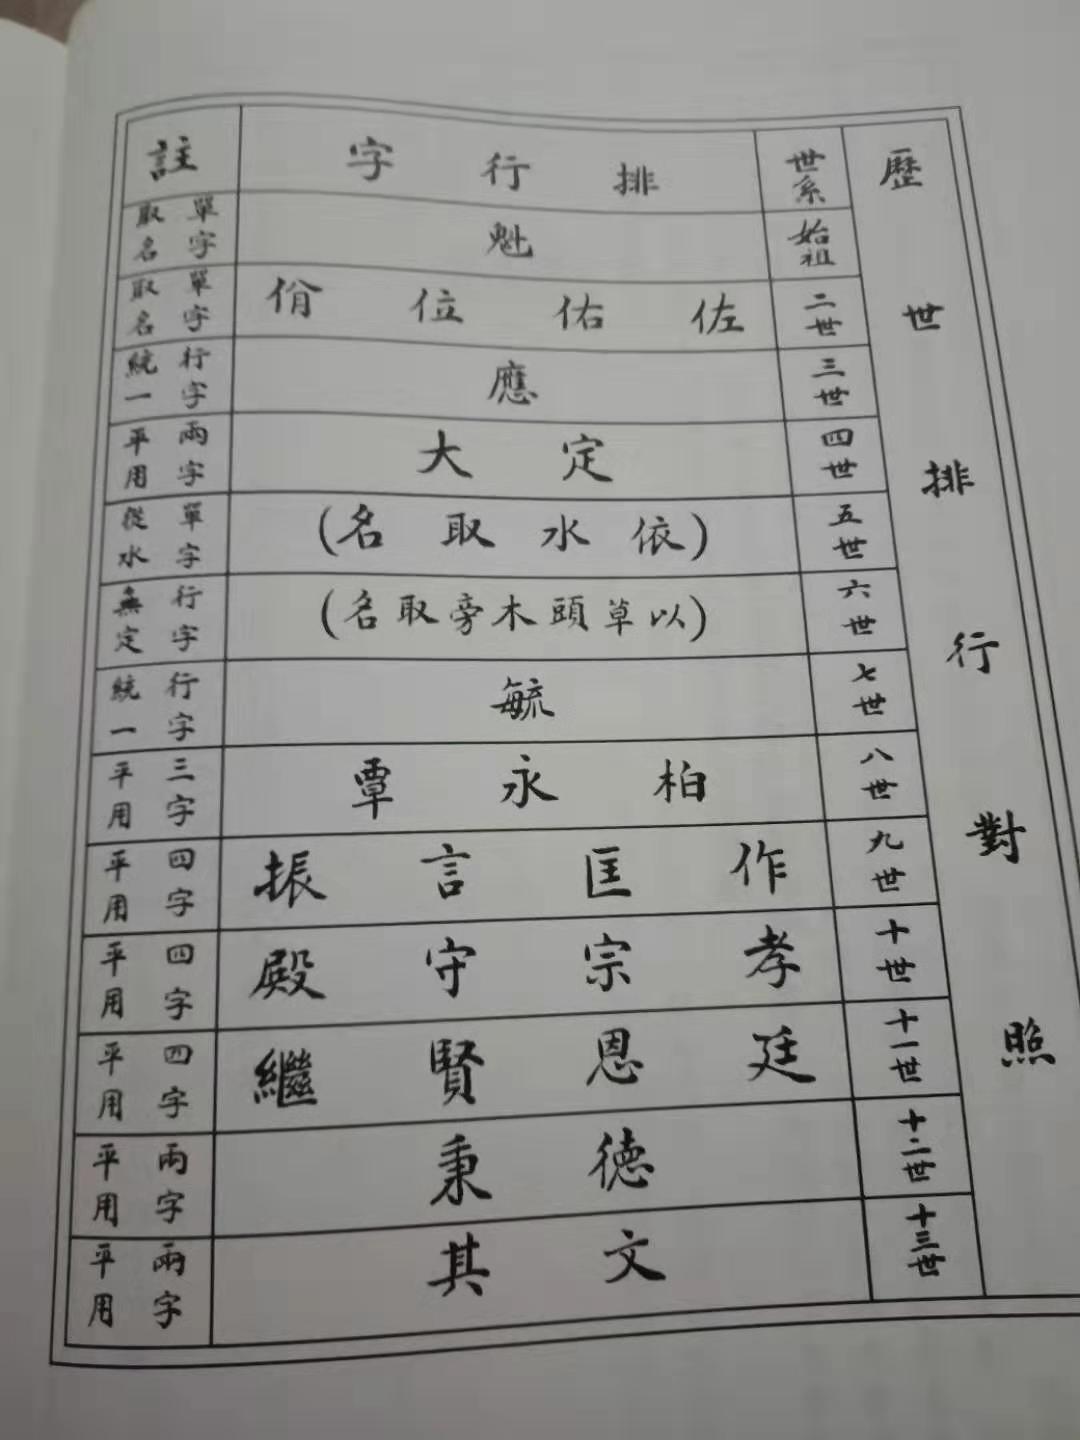 歷世排行對照
世系 排行字 註
始祖 魁 單字取名
二世 佐佑位佾 單字取名
三世 應 行字統一
四世 定大 兩字平用
五世 (依水取名) 單字從水
六世 (以草頭木旁取名) 行字無定
七世 毓 行字統一
八世 柏永覃 三字平用
九世 作匡言振 四字平用
十世 孝宗守殿 四字平用
十一世 廷恩賢繼 四字平用
十二世 德秉 兩字平用
十三世 文其 兩字平用